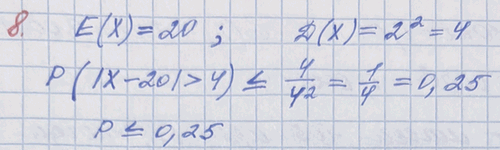 8. E(X) = 20 ; D(X) = 2² = 4
P(|X - 20| > 4) ≤ 4/4² = 1/4 = 0,25
P ≤ 0,25